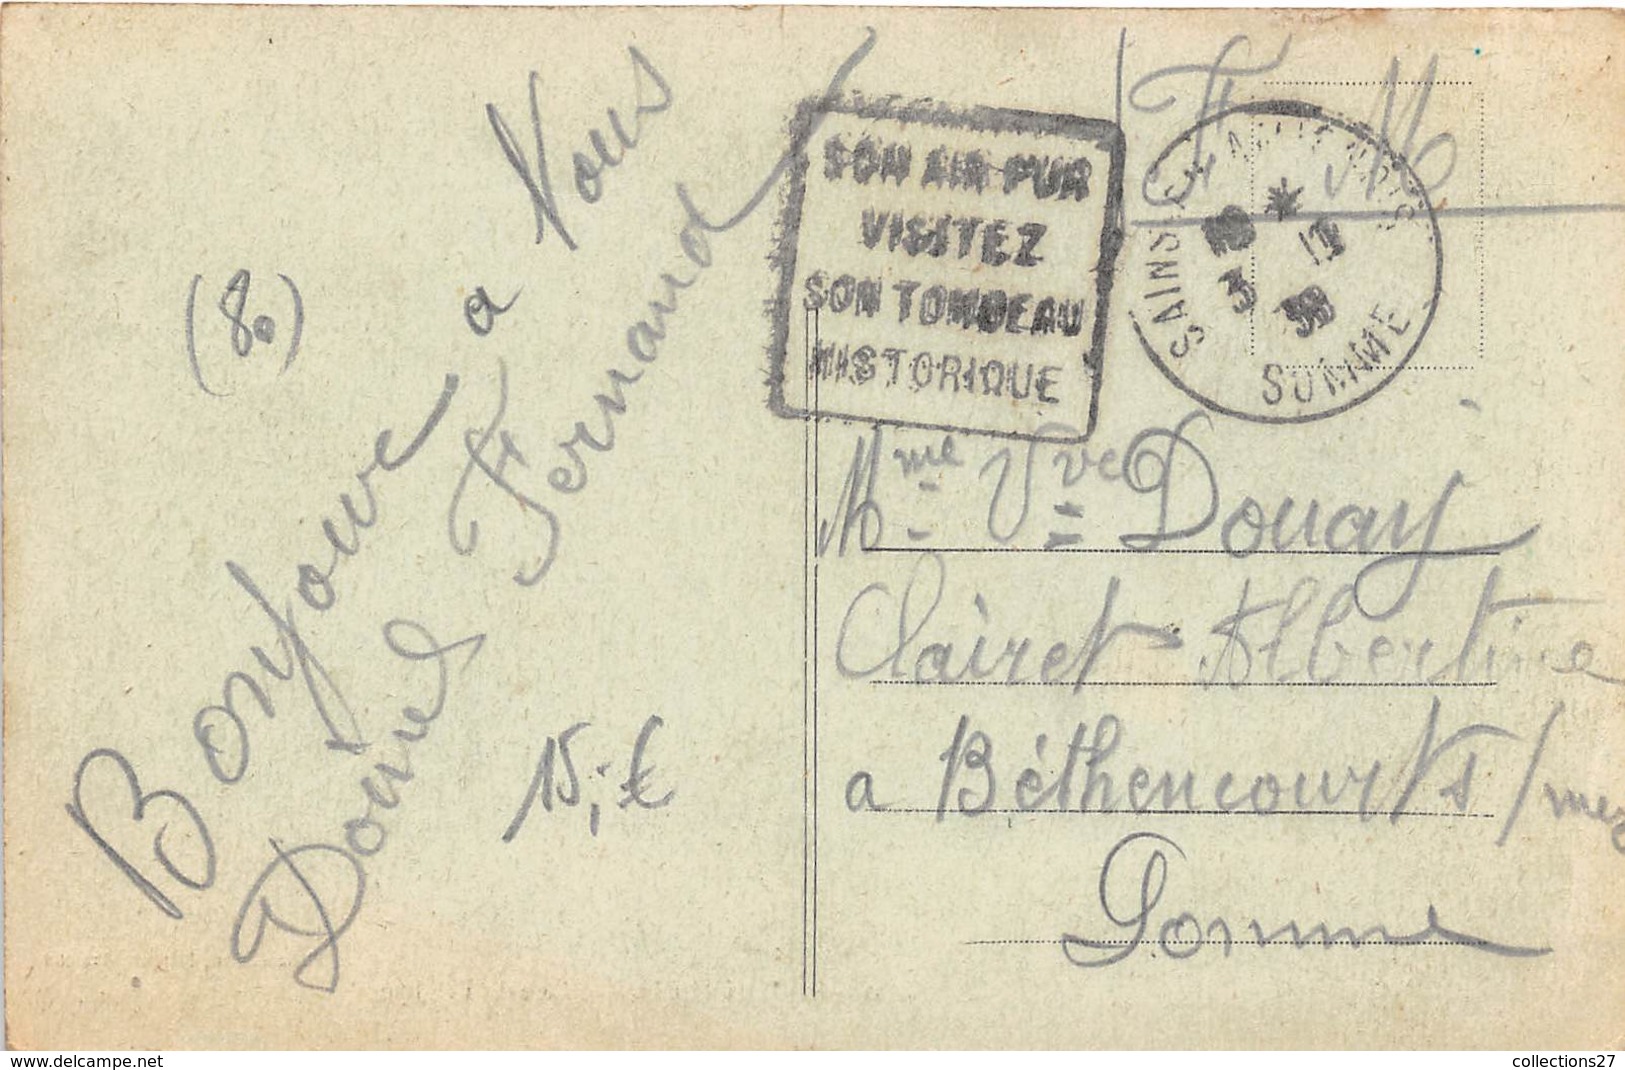 Bonjour a Vous
Fernand
(80)
15,-€
F M
SON AIR PUR
VISITEZ
SON TOMBEAU
HISTORIQUE
SAINS-EN-AMIENOIS
3 38
SOMME
Mme Vve Douay
Clairet Albertine
a Béthencourt s/mer
Somme
www.delcampe.net
collections27